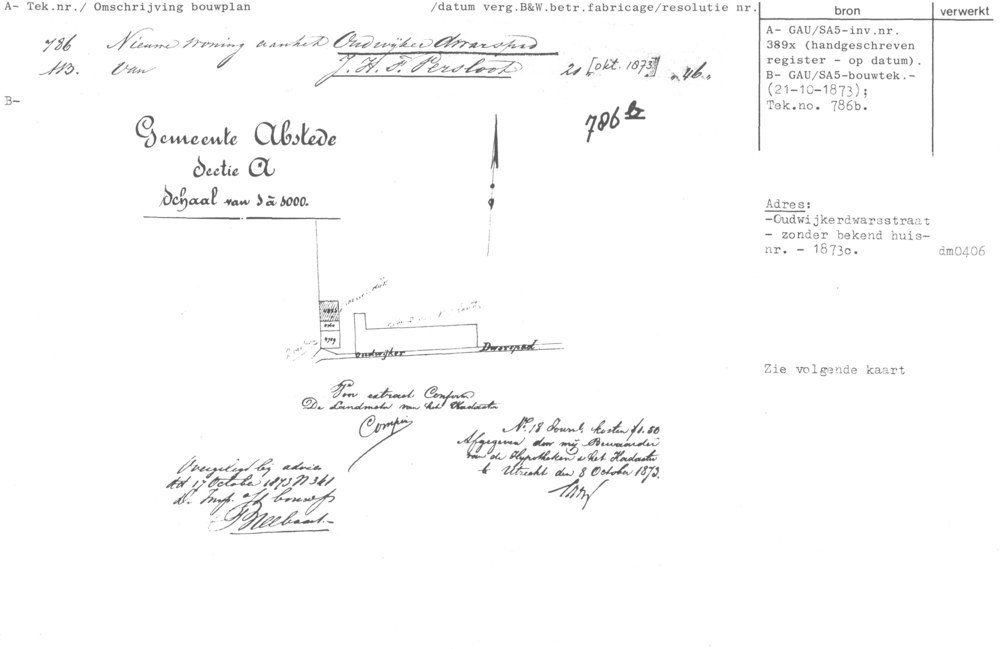 A- Tek.nr./ Omschrijving bouwplan /datum verg.B&W.betr.fabricage/resolutie nr.
bron
verwerkt
786 Nieuwe Woning aan het Oudwijker dwarspad
AB. Van J. H. F. Persloot 21 [okt. 1873] 46.
A- GAU/SA5-inv.nr.
389x (handgeschreven
register - op datum).
B- GAU/SA5-bouwtek.-
(21-10-1873);
Tek.no. 786b.
B-
786 b
Gemeente Abstede
Sectie A
Schaal van 1 à 1000.
Adres:
-Oudwijkerdwarsstraat
- zonder bekend huis-
nr. - 1873c.
dm0406
Oudwijker Dwarspad
Zie volgende kaart
Voor extract Conform
De Landmeter van het Kadaster
No. 18 Journl. kosten f1.50
Afgegeven door mij Bewaarder
van de Hypotheken & het Kadaster
te Utrecht den 8 October 1873.
Overgelegd bij advies
dd 17 October 1873 N 361